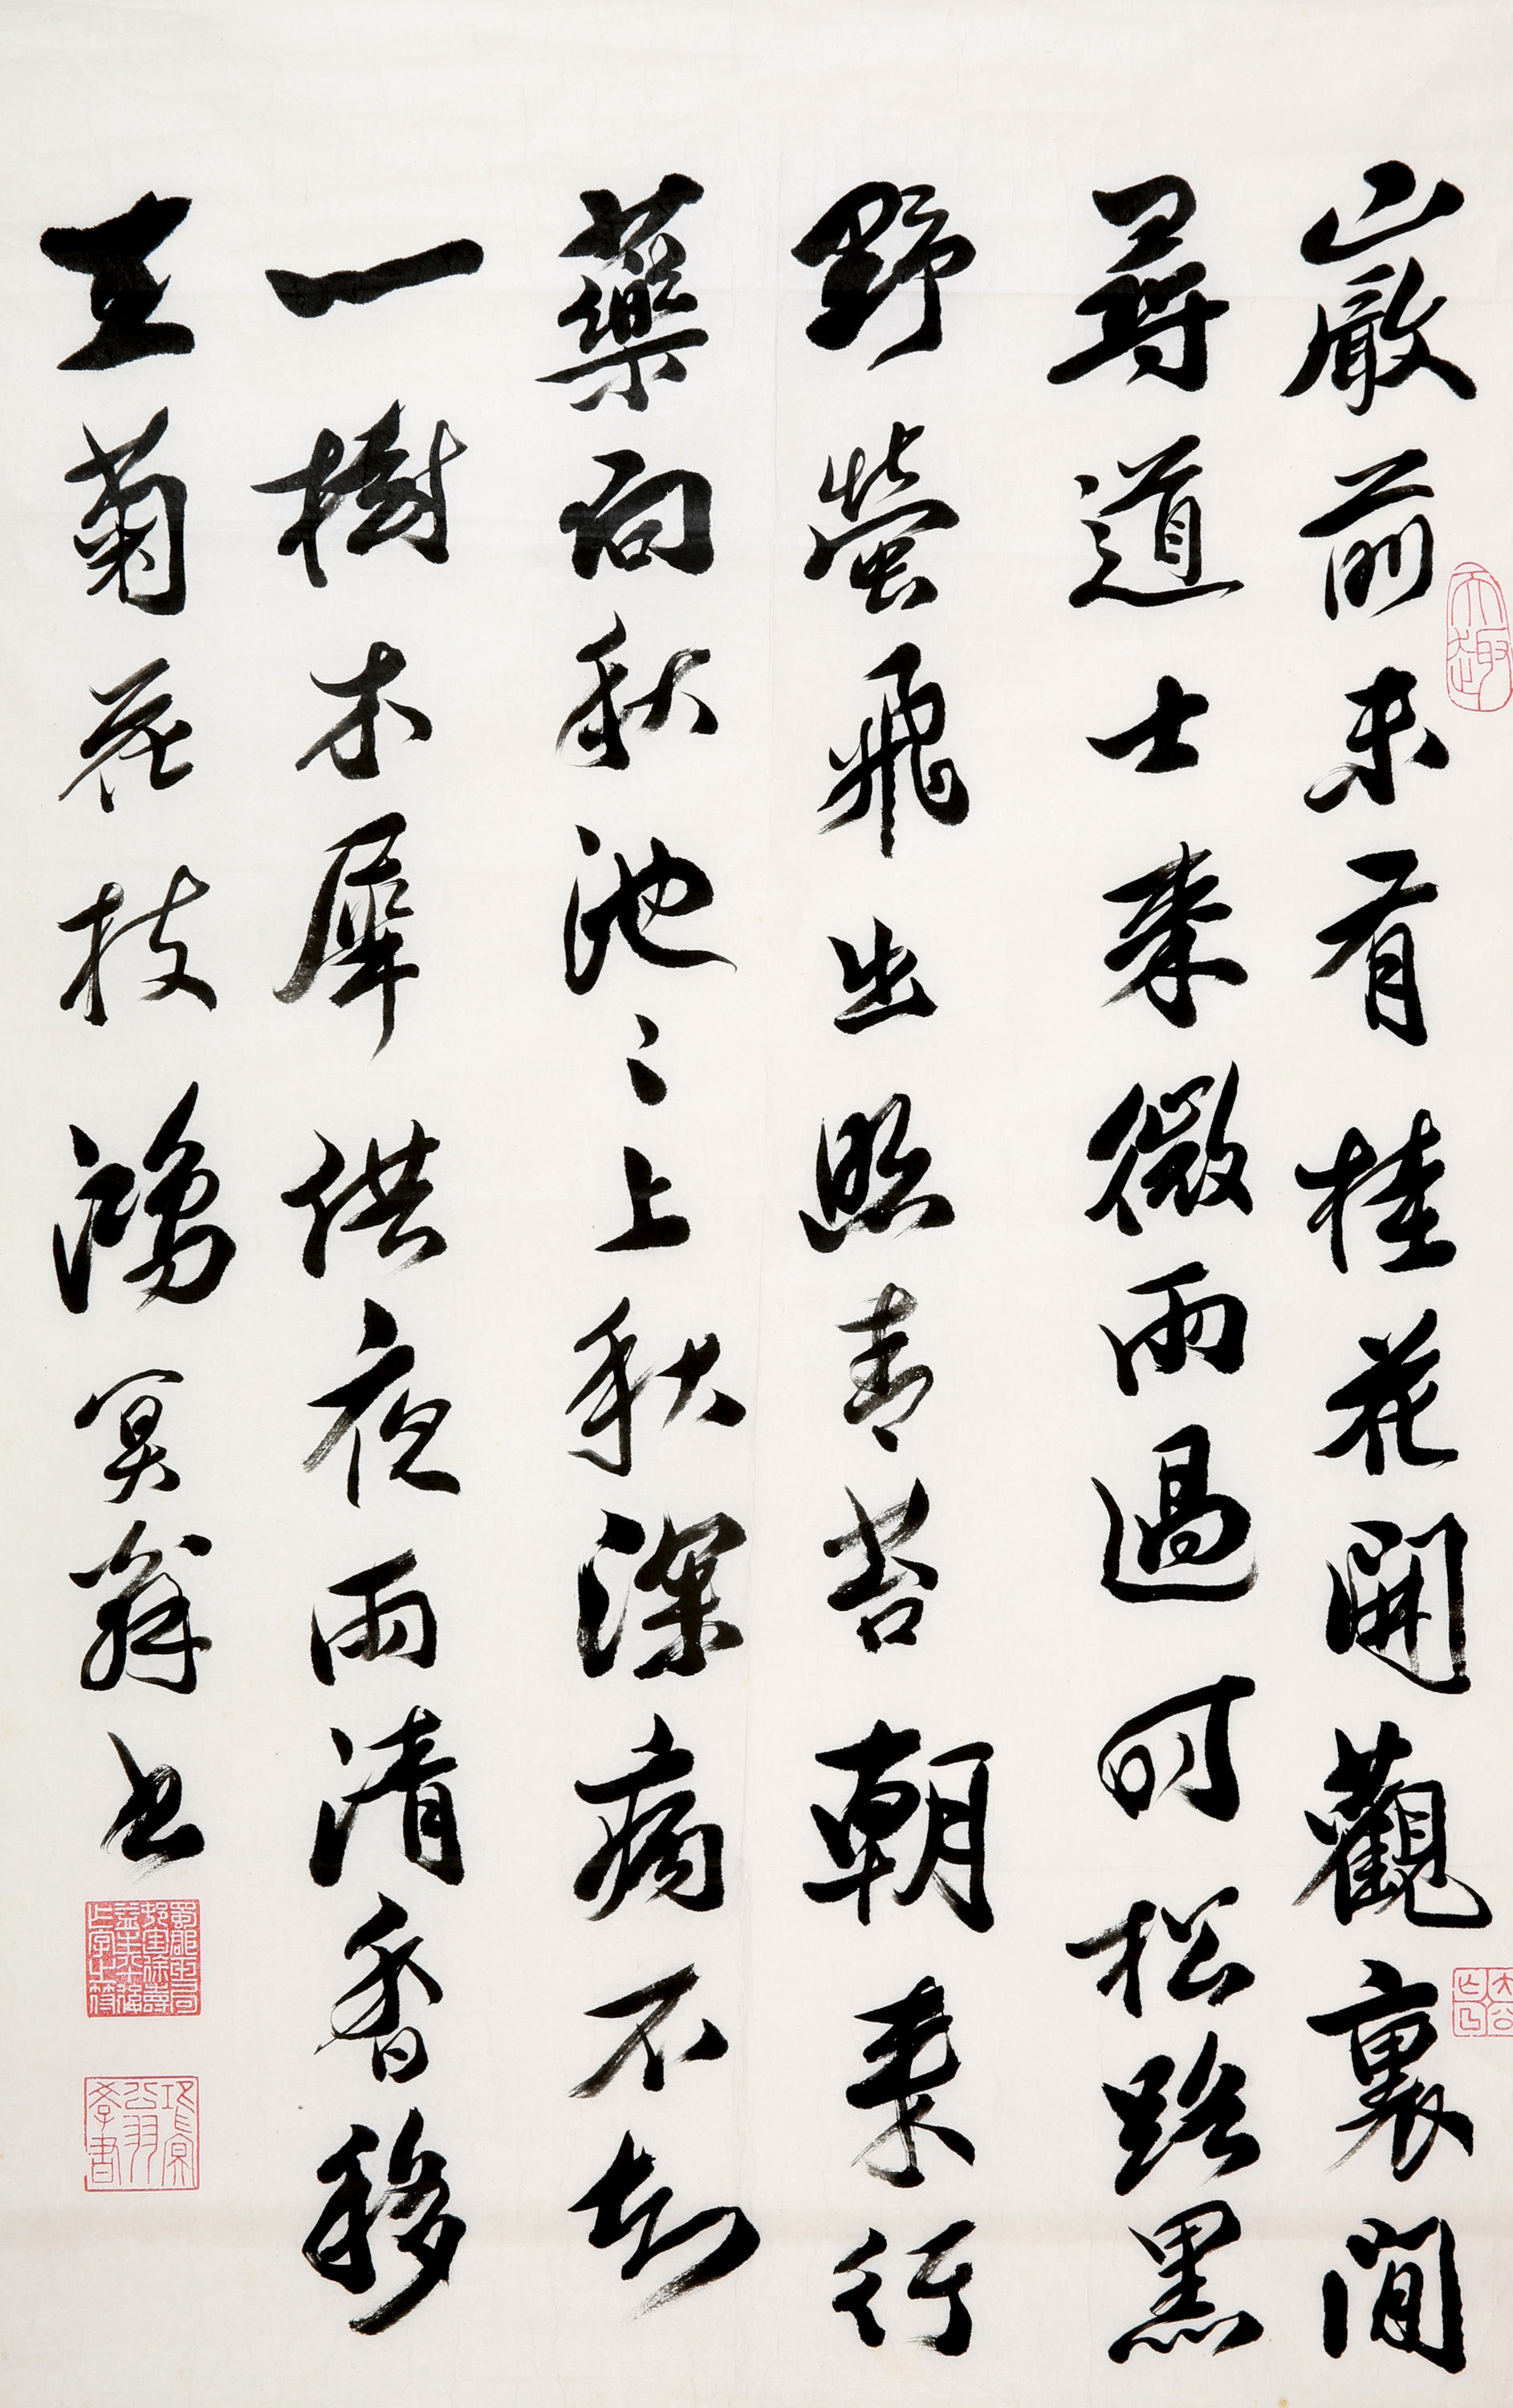 巖前未有桂花開觀裏閒
尋道士來微雨過時松路黑
野螢飛出照青苔朝來行
藥向秋池〻上秋深病不知
一樹木犀供夜雨清香移
在菊花枝 鴻冥翁書
天趣